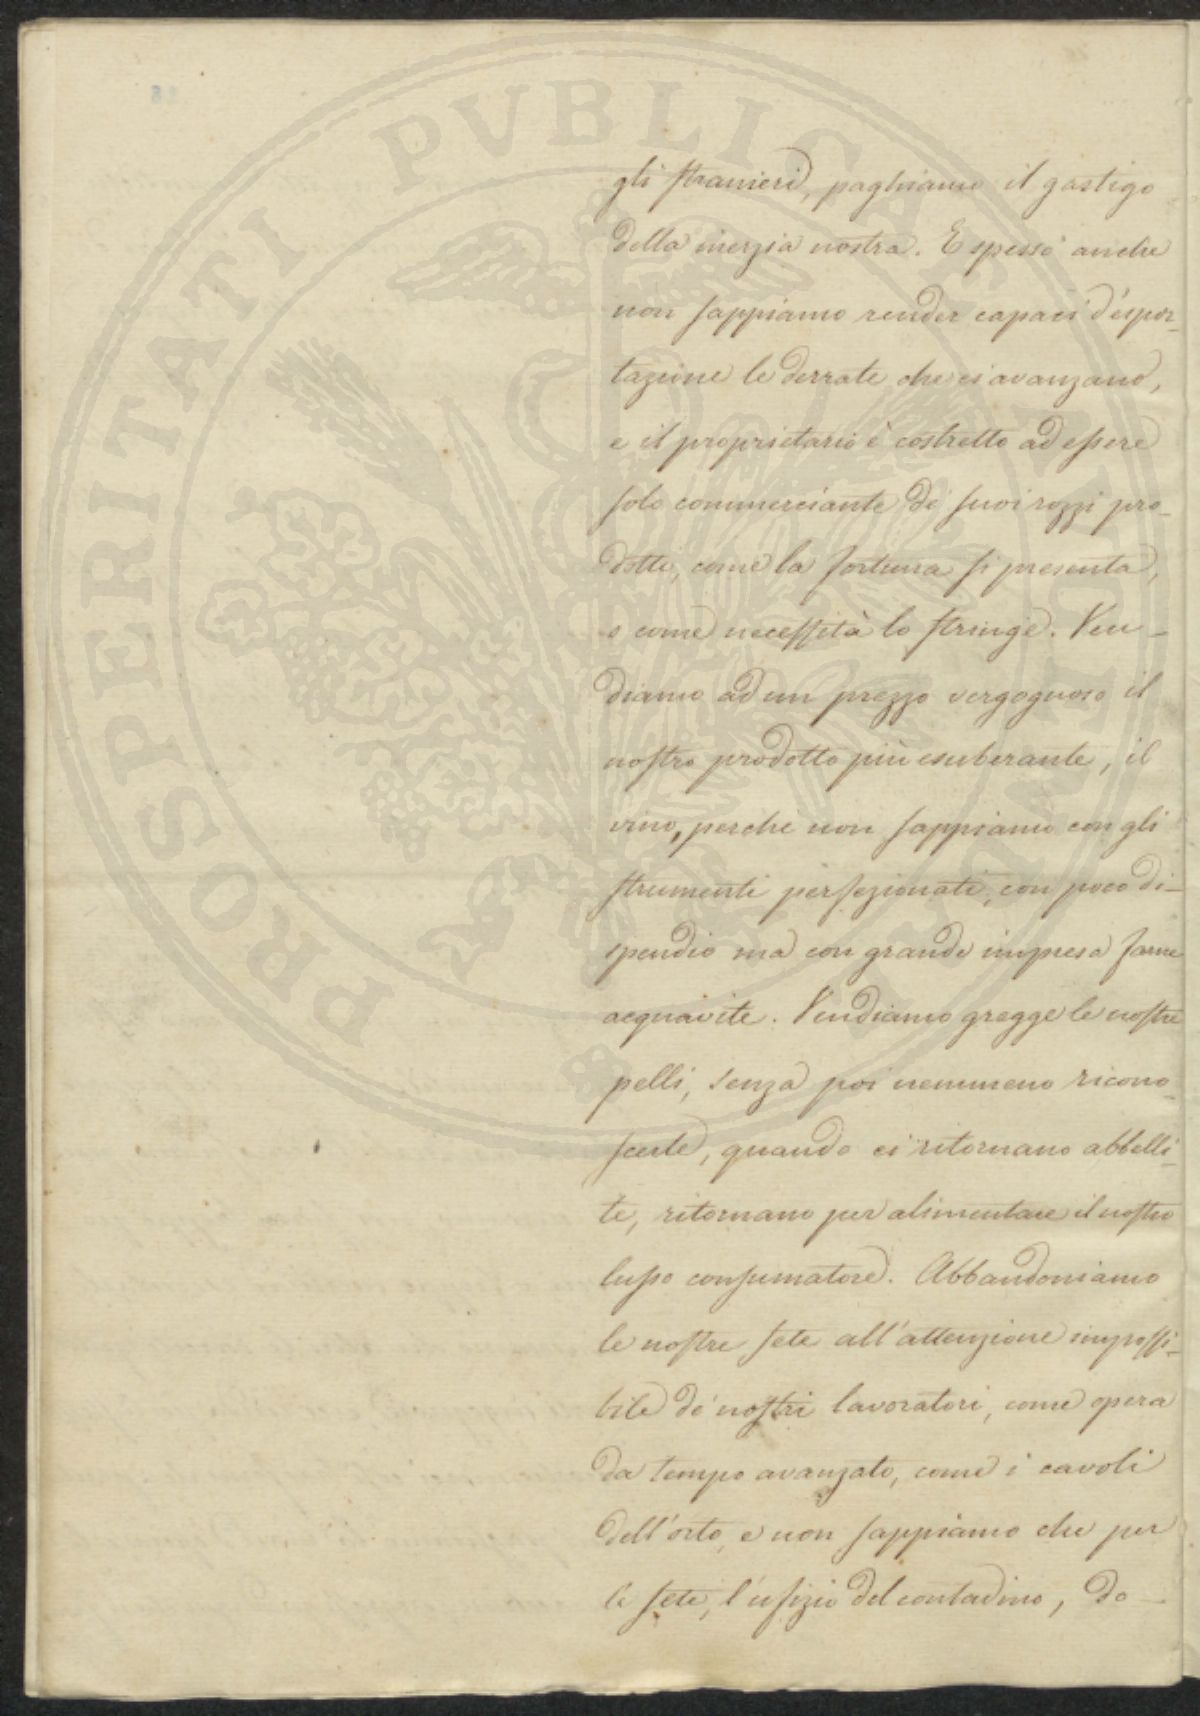 PROSPERITATI PVBLICAE
gli stranieri, paghiamo il gastigo
della inerzia nostra. E spesso anche
non sappiamo render capaci d'espor-
tazione le derrate che ci avanzano,
e il proprietario è costretto ad essere
solo commerciante de' suoi rozzi pro-
dotti, come la fortuna si presenta,
o come necessità lo stringe. Ven-
diamo ad un prezzo vergognoso il
nostro prodotto più esuberante, il
vino, perchè non sappiamo con gli
strumenti perfezionati, con poco di-
spendio ma con grande impresa farne
acquavite. Vendiamo gregge le nostre
pelli, senza poi nemmeno ricono
scerle, quando ci ritornano abbelli-
te, ritornano per alimentare il nostro
lusso consumatore. Abbandoniamo
le nostre sete all'attenzione impossi-
bile de' nostri lavoratori, come opera
da tempo avanzato, come i cavoli
dell'orto, e non sappiamo che per
le sete, l'ufizio del contadino, do-